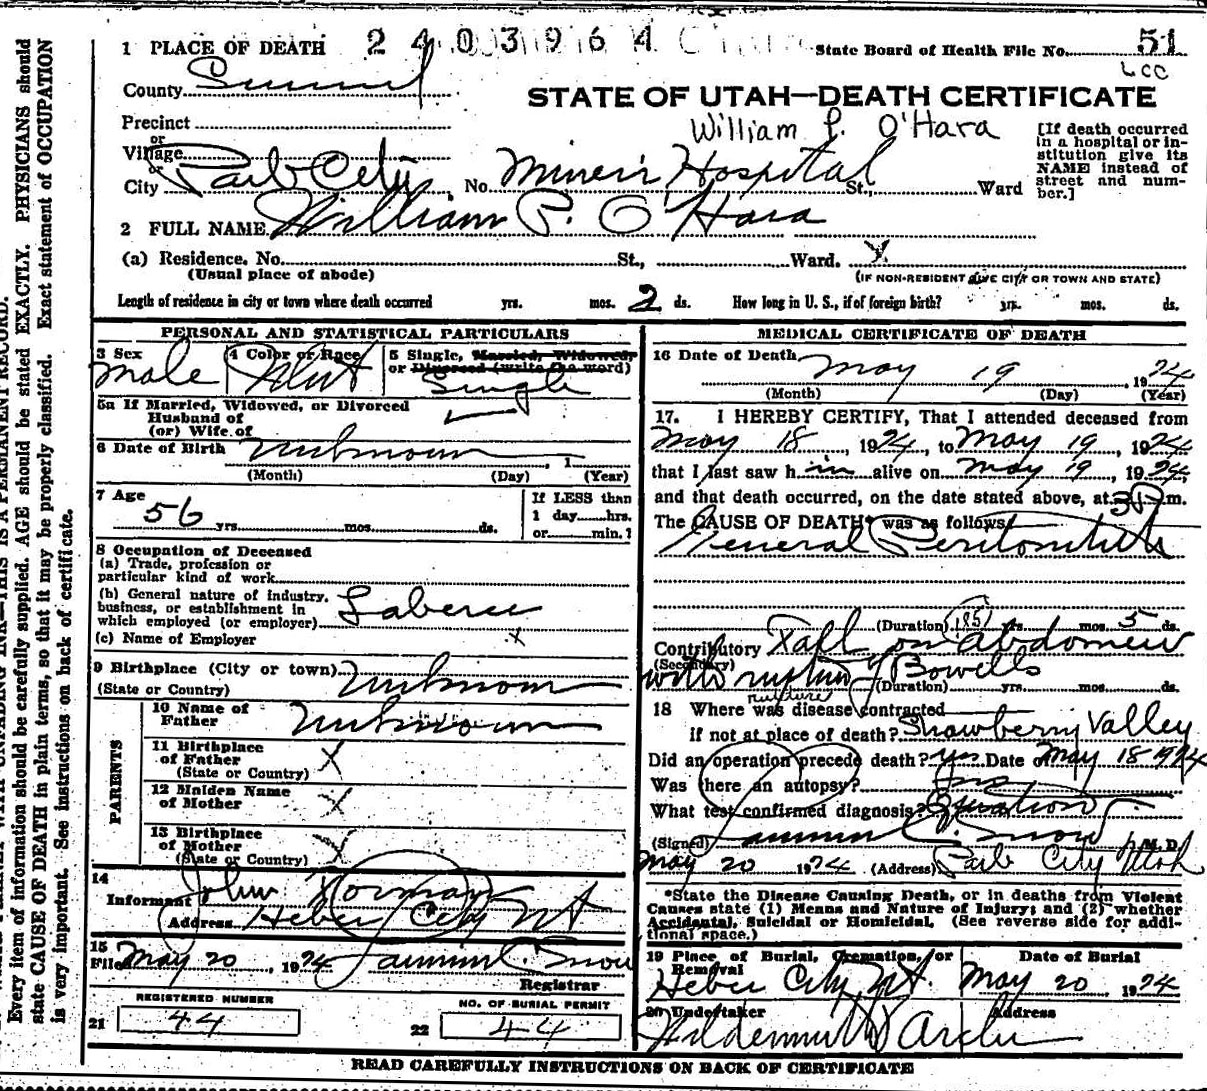 1 PLACE OF DEATH 2403964 State Board of Health File No. 51
County Summit
STATE OF UTAH—DEATH CERTIFICATE
Precinct
William P. O'Hara
or
Village
or
City Park City No. Miners Hospital St., Ward
[If death occurred
in a hospital or in-
stitution give its
NAME instead of
street and num-
ber.]
2 FULL NAME William P. O'Hara
(a) Residence. No. St., Ward.
(Usual place of abode) (IF NON-RESIDENT GIVE CITY OR TOWN AND STATE)
Length of residence in city or town where death occurred yrs. mos. 2 ds. How long in U. S., if of foreign birth? yrs. mos. ds.
PERSONAL AND STATISTICAL PARTICULARS
3 Sex 4 Color or Race 5 Single, Married, Widowed,
or Divorced (write the word)
Male Single
5a If Married, Widowed, or Divorced
Husband of
(or) Wife of
6 Date of Birth Unknown , 1
(Month) (Day) (Year)
7 Age If LESS than
1 day hrs.
56 yrs. mos. ds. or min.?
8 Occupation of Deceased
(a) Trade, profession or
particular kind of work
(b) General nature of industry,
business, or establishment in
which employed (or employer) Laborer
(c) Name of Employer x
9 Birthplace (City or town) Unknown
(State or Country)
PARENTS
10 Name of
Father Unknown
11 Birthplace
of Father X
(State or Country)
12 Maiden Name
of Mother X
13 Birthplace
of Mother X
(State or Country)
14
Informant John Norman
Address Heber City Ut
15
File May 20, 1924
Registrar
REGISTERED NUMBER NO. OF BURIAL PERMIT
21 44 22 44
MEDICAL CERTIFICATE OF DEATH
16 Date of Death May 19 , 1924
(Month) (Day) (Year)
17. I HEREBY CERTIFY, That I attended deceased from
May 18 1924, to May 19, 1924
that I last saw him alive on May 19, 1924,
and that death occurred, on the date stated above, at m.
The CAUSE OF DEATH* was as follows:
General Peritonitis
(Duration) 185 yrs. mos. 5 ds.
Contributory Fall on abdomen
(Secondary)
with rupture of Bowells
rupture (Duration) yrs. mos. ds.
18 Where was disease contracted
if not at place of death? Strawberry Valley
Did an operation precede death? yes. Date of May 18 1924
Was there an autopsy? no
What test confirmed diagnosis? Operation
(Signed) Snow, M. D.
May 20 1924 (Address) Park City Utah
*State the Disease Causing Death, or in deaths from Violent
Causes state (1) Means and Nature of Injury; and (2) whether
Accidental, Suicidal or Homicidal. (See reverse side for addi-
tional space.)
19 Place of Burial, Cremation, or
Removal Date of Burial
Heber City Ut. May 20 1924
20 Undertaker Address
READ CAREFULLY INSTRUCTIONS ON BACK OF CERTIFICATE
Every item of information should be carefully supplied. AGE should be stated EXACTLY. PHYSICIANS should
state CAUSE OF DEATH in plain terms, so that it may be properly classified. Exact statement of OCCUPATION
is very important. See instructions on back of certificate.